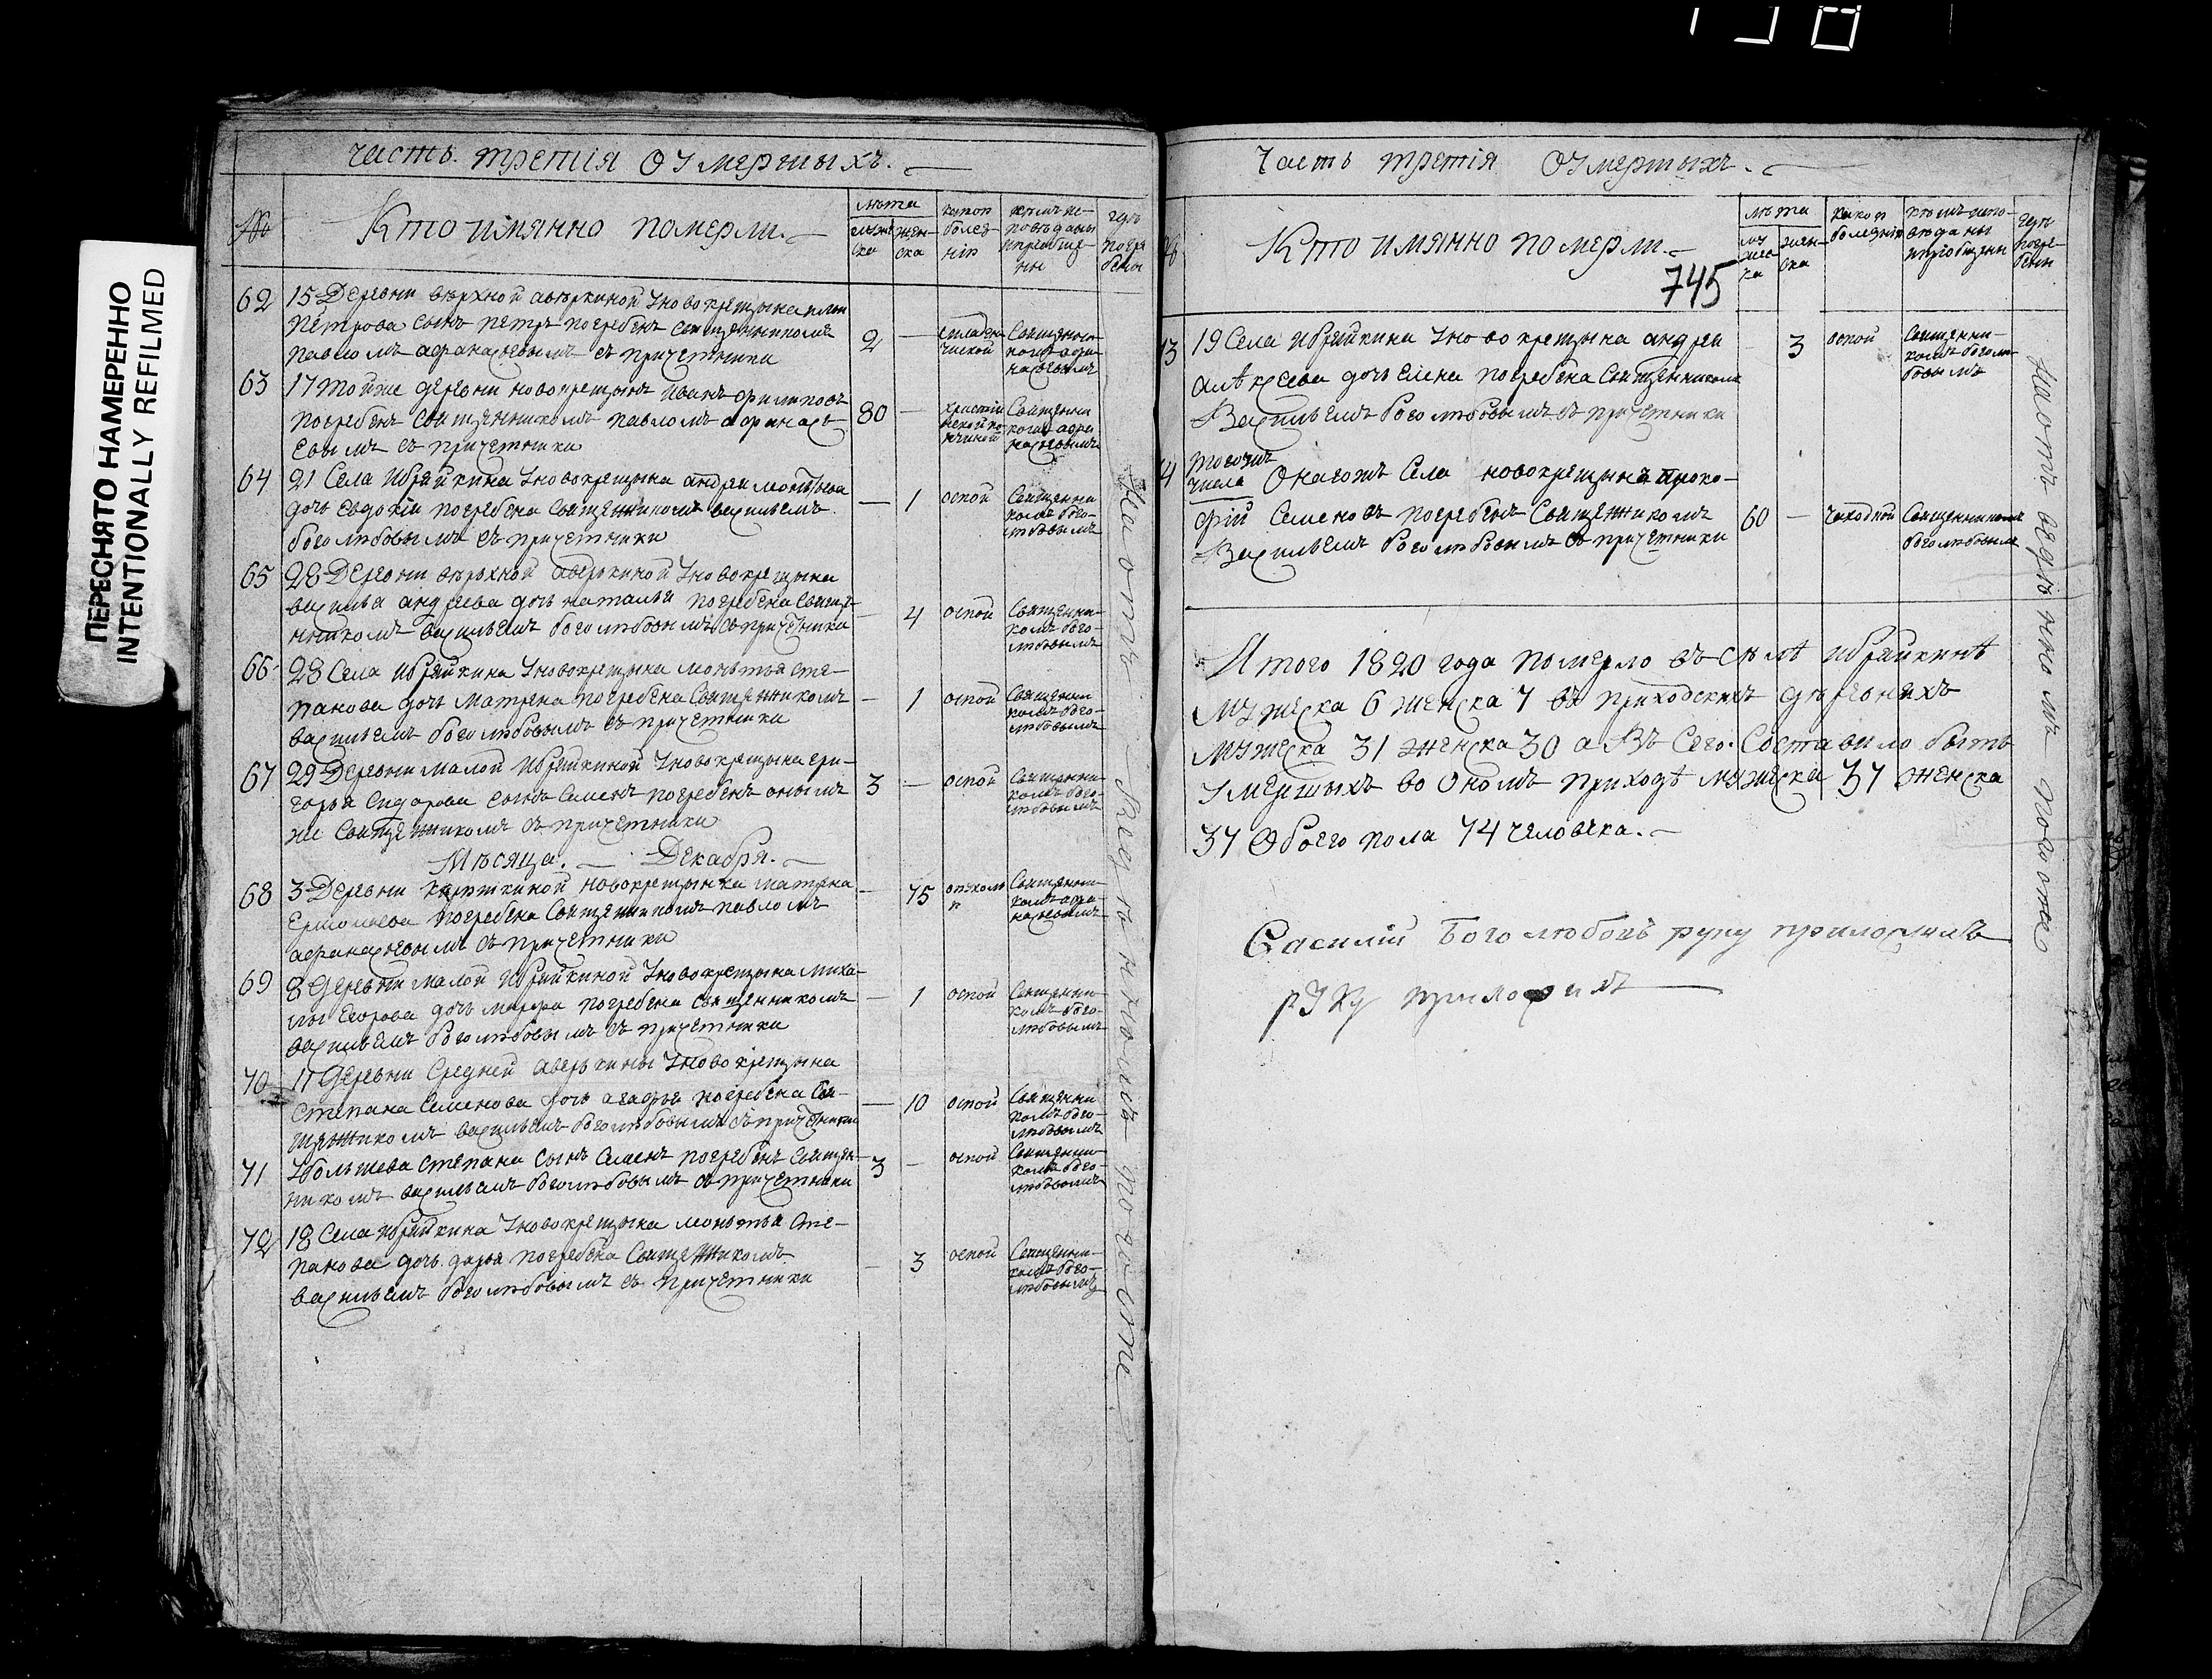 ПЕРЕСНЯТО НАМЕРЕННО
INTENTIONALLY REFILMED
часть третія О умершыхъ.
№
Кто имянно померли.
лѣта
мужеска
женска
какой
болез-
нію
кѣмъ и-
сповѣданы
и приобще-
ны
гдѣ
погре-
бены
62
15 Деревни вѣрхной авѣркиной у новокрещына
Петрова сынъ петръ погребенъ священникомъ
павломъ афанасьевымъ съ причетники
2
—
Священни-
комъ афа-
насьевымъ
63
17 тойже деревни новокрещынъ иванъ филиповъ
погребенъ священникомъ павломъ афанась-
евымъ съ причетники
80
—
Священни
комъ афа
насьевымъ
64
21 Села ибряйкина у новокрещына андрея
дочь евдокія погребена священникомъ васильемъ
боголюбовымъ съ причетники
—
1
оспой
Священни
комъ бого-
любовымъ
65
28 Деревни вѣрхной аверкиной у новокрещына
василья андреева дочь наталья погребена священ-
никомъ васильемъ боголюбовымъ съ причетники
4
оспой
Священни-
комъ бого-
любовымъ
66
28 Села ибряйкина у новокрещына Сте-
панова дочь матрена погребена священникомъ
васильемъ боголюбовымъ съ причетники
—
1
оспой
Священни
комъ бого-
любовымъ
67
29 Деревни малой ибряйкиной у новокрещына гри-
горья Сидорова сынъ Семенъ погребенъ онымъ
же священникомъ съ причетники
3
—
оспой
Священни-
комъ бого-
любовымъ
Мѣсяца. — Декабря. —
68
3 Деревни новокрещынка матрена
Ермолаева погребена священникомъ павломъ
афанасьевымъ съ причетники
—
75
Священни-
комъ афа-
насьевымъ
69
8 деревни малой ибряйкиной у новокрещына миха-
лы Егорова дочь марфа погребена священникомъ
васильемъ боголюбовымъ съ причетники
—
1
оспой
Священни-
комъ бого-
любовымъ
70
11 деревни Средней аверкины у новокрещына
Степана Семенова дочь агафья погребена свя-
щенникомъ васильемъ боголюбовымъ съ причетники
—
10
оспой
Священни
комъ бого-
любовымъ
71
степана сынъ Семенъ погребенъ священ-
никомъ васильемъ боголюбовымъ съ причетники
3
—
оспой
Священни-
комъ бого-
любовымъ
72
18 Села ибряйкина у новокрещына Сте-
панова дочь дарья погребена священникомъ
васильемъ боголюбовымъ съ причетники
—
3
оспой
Священни-
комъ бого-
любовымъ
На отведенномъ погосте
Часть третія О умершыхъ.
Кто имянно померли.
745
лѣта
му
жес-
ка
жен-
ска
какой
болезнію
кѣмъ испо-
вѣданы
и приобщены
гдѣ
погре-
бены
13
19 Села ибряйкина у новокрещына андрея
алѣксеева дочь елена погребена священникомъ
Васильемъ боголюбовымъ съ причетники
—
3
оспой
Священни-
комъ боголю-
бовымъ
4
тогожъ
числа Онагожъ Села новокрещынъ проко-
фій Семеновъ погребенъ священникомъ
Васильемъ боголюбовымъ съ причетники
60
—
чахоткой
Священникомъ
боголюбовымъ
На отведенномъ погосте
Итого 1820 года померло въ селѣ ибряйкинѣ
мужеска 6 женска 7 въ приходскихъ деревняхъ
мужеска 31 женска 30 а Въ Сего Составило быть
умершыхъ во Ономъ приходѣ мужеска 37 женска
37 Обоего пола 74 человека.
Василій Боголюбовъ руку приложилъ
руку приложилъ